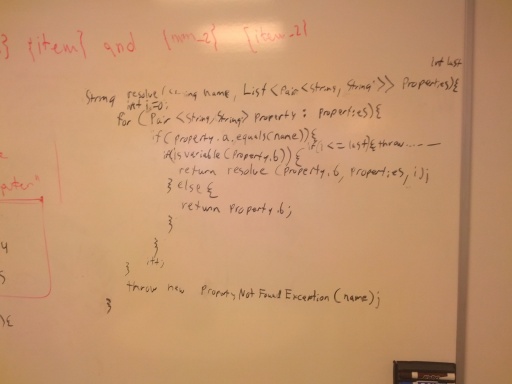 } {item} and {num_2} {item_2}
int last
String resolve(String name, List<Pair<String, String>> properties){
int i=0;
for (Pair <String, String> property : properties){
if(property.a.equals(name)){
if(i <= last){throw......
if(isvariable(property.b)){
return resolve (property.b, properties, i);
} else {
return property.b;
}
}
i++;
}
throw new PropertyNotFoundException(name);
}
puter"
4
5